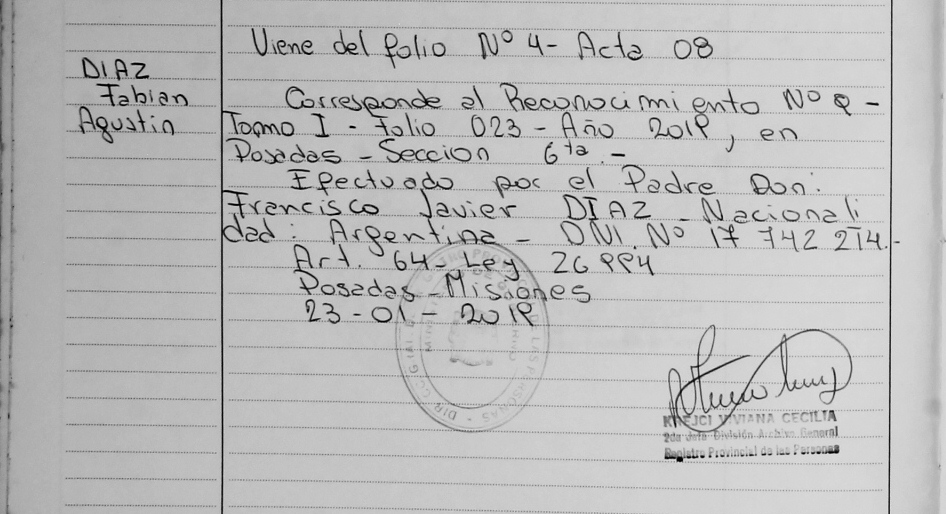 Viene del folio Nº 4- Acta 08
DIAZ
Fabian
Agustin
Corresponde al Reconocimiento Nº 9 -
Toomo I - Folio 023 - Año 2019, en
Posadas - Seccion 6ta. -
Efectuado por el Padre Don:
Francisco Javier DIAZ - Nacionali
dad: Argentina - DNI. Nº 17 742 214.-
Art. 64 - Ley 26 994
Posadas - Misiones
23 - 01 - 2019
KREJCI VIVIANA CECILIA
2da Jefa División Archivo General
Registro Provincial de las Personas